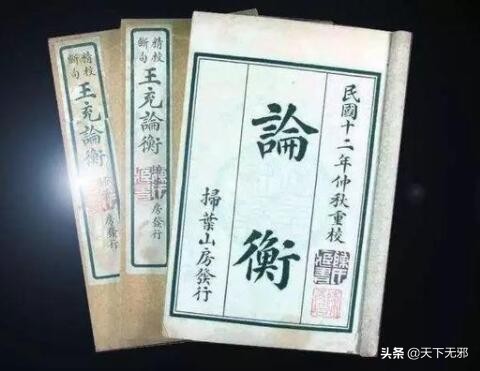 精校
断句
王充論衡
房發行
精校
断句
王充論衡
山房發行
民國十二年仲秋重校
論衡
掃葉山房發行
头条 @天下无邪